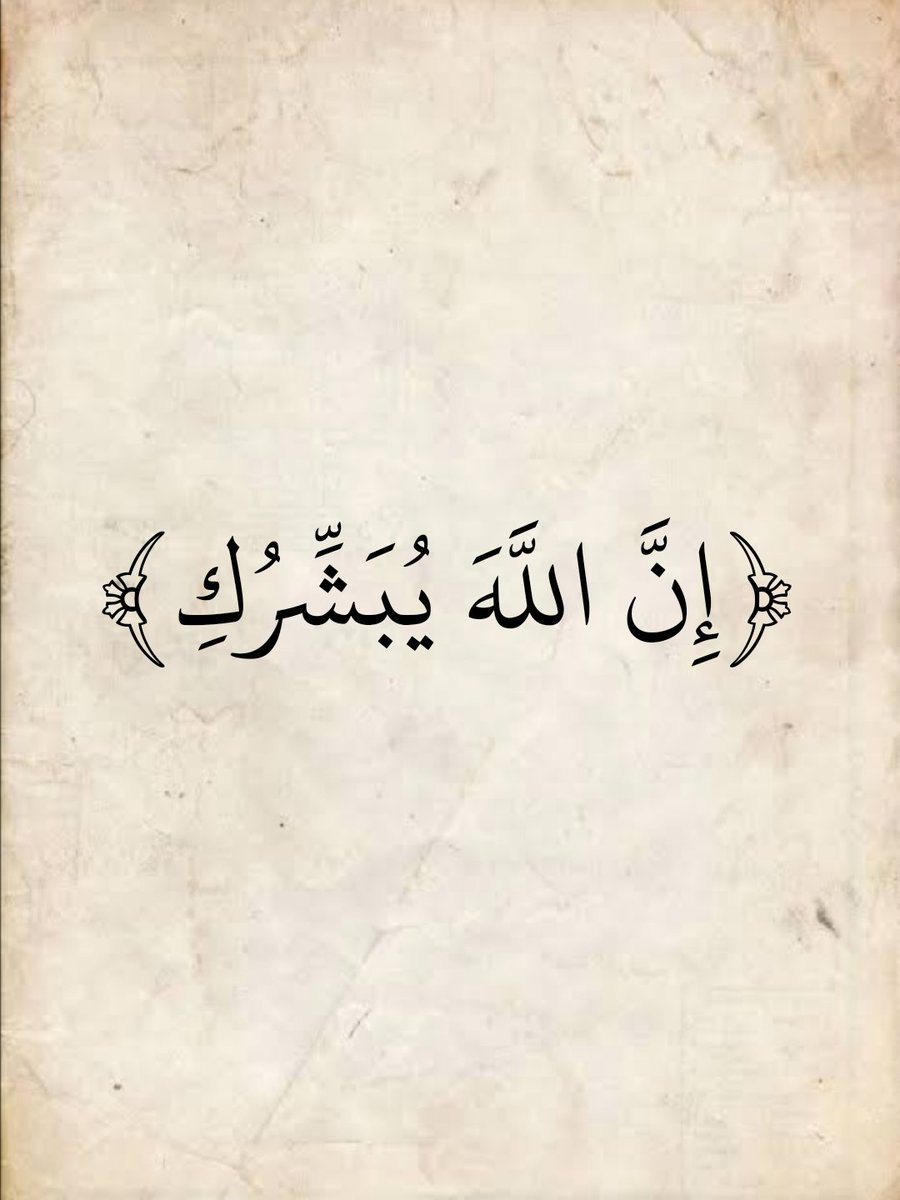 ﴿إِنَّ اللَّهَ يُبَشِّرُكِ﴾